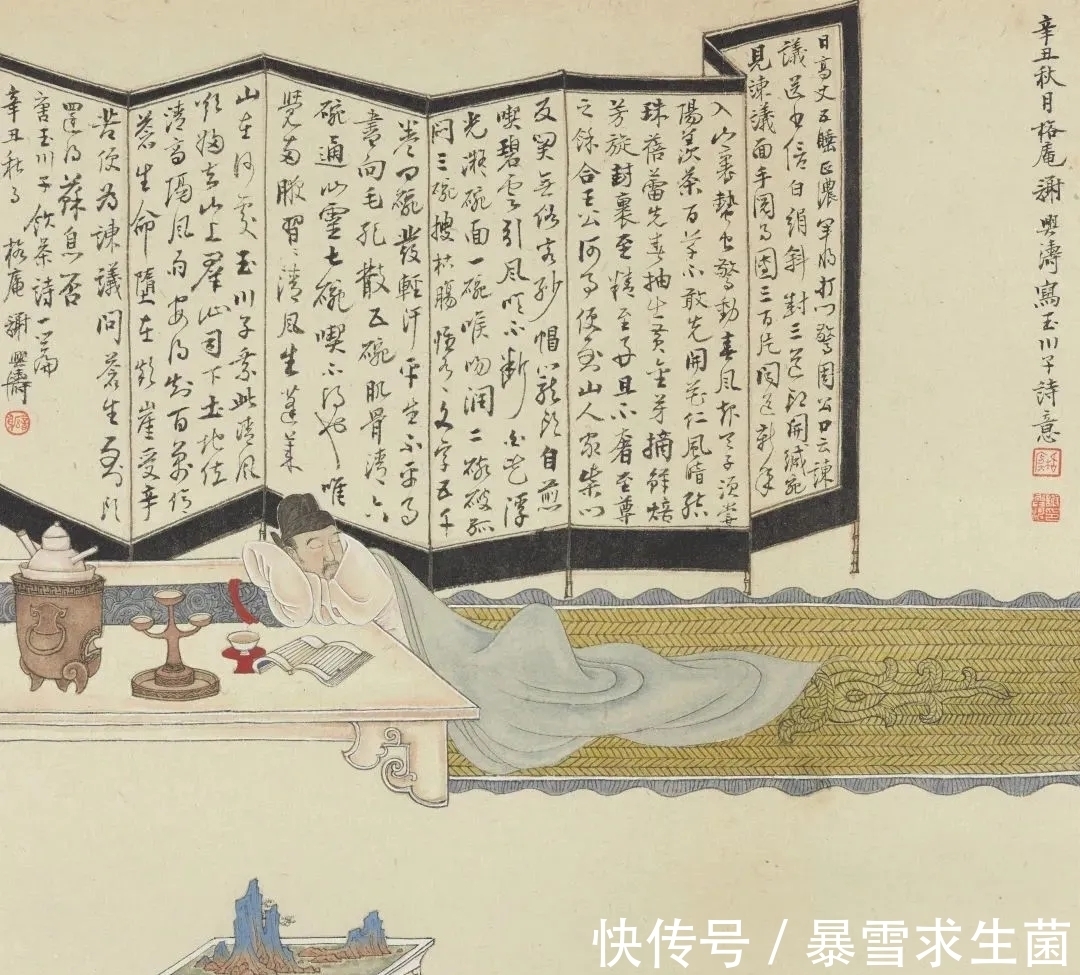 辛丑秋月格庵謝興濤寫玉川子詩意
日高丈五睡正濃軍將打門驚周公口云諫
議送書信白絹斜封三道印開緘宛
見諫議面手閱月團三百片聞道新年
入山裏蟄蟲驚動春風起天子須嘗
陽羨茶百草不敢先開花仁風暗結
珠蓓蕾先春抽出黃金芽摘鮮焙
芳旋封裹至精至好且不奢至尊
之餘合王公何事便到山人家柴門
反關無俗客紗帽籠頭自煎
喫碧雲引風吹不斷白花浮
光凝碗面一碗喉吻潤二碗破孤
悶三碗搜枯腸惟有文字五千
卷四碗發輕汗平生不平事
盡向毛孔散五碗肌骨清六
碗通仙靈七碗喫不得也唯
覺兩腋習〻清風生蓬萊
山在何處玉川子乘此清風
欲歸去山上群仙司下土地位
清高隔風雨安得知百萬億
蒼生命墮在巔崖受辛
苦便為諫議問蒼生到頭
還得蘇息否
唐玉川子飲茶詩一篇
辛丑秋月 格庵 謝興濤
快传号 / 暴雪求生菌